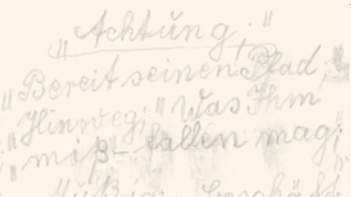 „Achtung;"
„Bereit seinen Pfad,
„Hinweg;" Was Ihm
„miß-fallen mag;